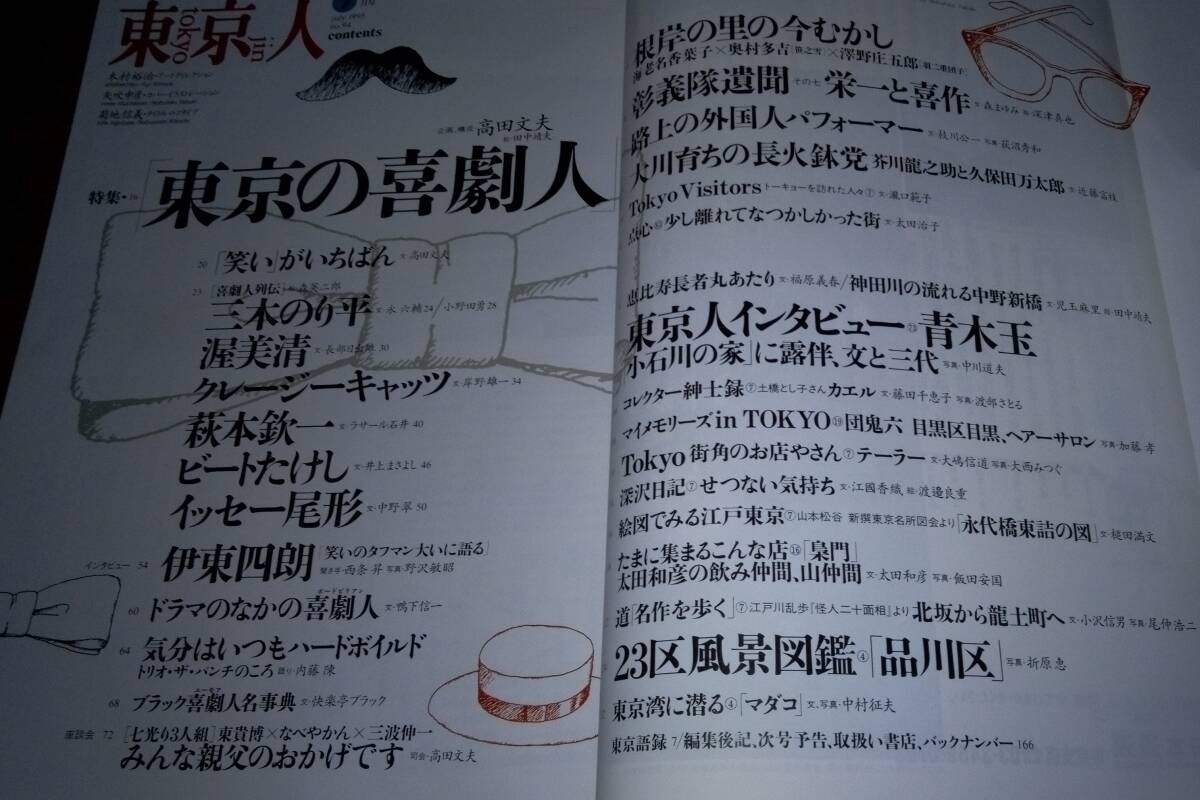 東京人
tokyo jin
7月号
july 1995
no.94
contents
木村裕治・アートディレクション
矢吹申彦・カバーイラストレーション
菊地信義・タイトル・ロゴタイプ
企画、構成 高田文夫
絵・田中靖夫
特集・16 「東京の喜劇人」
20 「笑い」がいちばん 文・高田文夫
23 [喜劇人列伝] 絵・森英二郎
三木のり平 文・永六輔24/小野田勇28
渥美清 文・長部日出雄 30
クレージーキャッツ 文・岸野雄一 34
萩本欽一 文・ラサール石井 40
ビートたけし 文・井上まさよし 46
イッセー尾形 文・中野翠 50
インタビュー 54 伊東四朗 「笑いのタフマン大いに語る」
聞き手・西条昇 写真・野沢敏昭
60 ドラマのなかの喜劇人 ボードビリアン 文・鴨下信一
64 気分はいつもハードボイルド
トリオ・ザ・パンチのころ 語り・内藤陳
68 ブラック喜劇人名事典 文・快楽亭ブラック
座談会 72 [七光り3人組] 東貴博×なべやかん×三波伸一
みんな親父のおかげです 司会・高田文夫
根岸の里の今むかし
海老名香葉子×奥村多吉[笹之雪]×澤野庄五郎[羽二重団子]
彰義隊遺聞 その七 栄一と喜作 文・森まゆみ 絵・深津真也
路上の外国人パフォーマー 文・枝川公一 写真・荻沼秀和
大川育ちの長火鉢党 芥川龍之助と久保田万太郎 文・近藤富枝
Tokyo Visitors トーキョーを訪れた人々⑦ 文・瀧口範子
点心 少し離れてなつかしかった街 文・太田治子
恵比寿長者丸あたり 文・福原義春/神田川の流れる中野新橋 文・児玉麻里 絵・田中靖夫
東京人インタビュー 青木玉
小石川の家」に露伴、文と三代 写真・中川道夫
コレクター紳士録⑦土橋とし子さん カエル 文・藤田千恵子 写真・渡部さとる
マイメモリーズ in TOKYO⑲団鬼六 目黒区目黒、ヘアーサロン 写真・加藤孝
Tokyo 街角のお店やさん⑦テーラー 文・大嶋信道 写真・大西みつぐ
深沢日記⑦せつない気持ち 文・江國香織 絵・渡邉良重
絵図でみる江戸東京⑦山本松谷 新撰東京名所図会より「永代橋東詰の図」 文・槌田満文
たまに集まるこんな店⑯「梟門」
太田和彦の飲み仲間、山仲間 文・太田和彦 写真・飯田安国
道「名作を歩く」⑦江戸川乱歩「怪人二十面相」より 北坂から龍土町へ 文・小沢信男 写真・尾仲浩二
23区風景図鑑④「品川区」 写真・折原恵
東京湾に潜る④「マダコ」 文、写真・中村征夫
東京語録 7/編集後記、次号予告、取扱い書店、バックナンバー 166